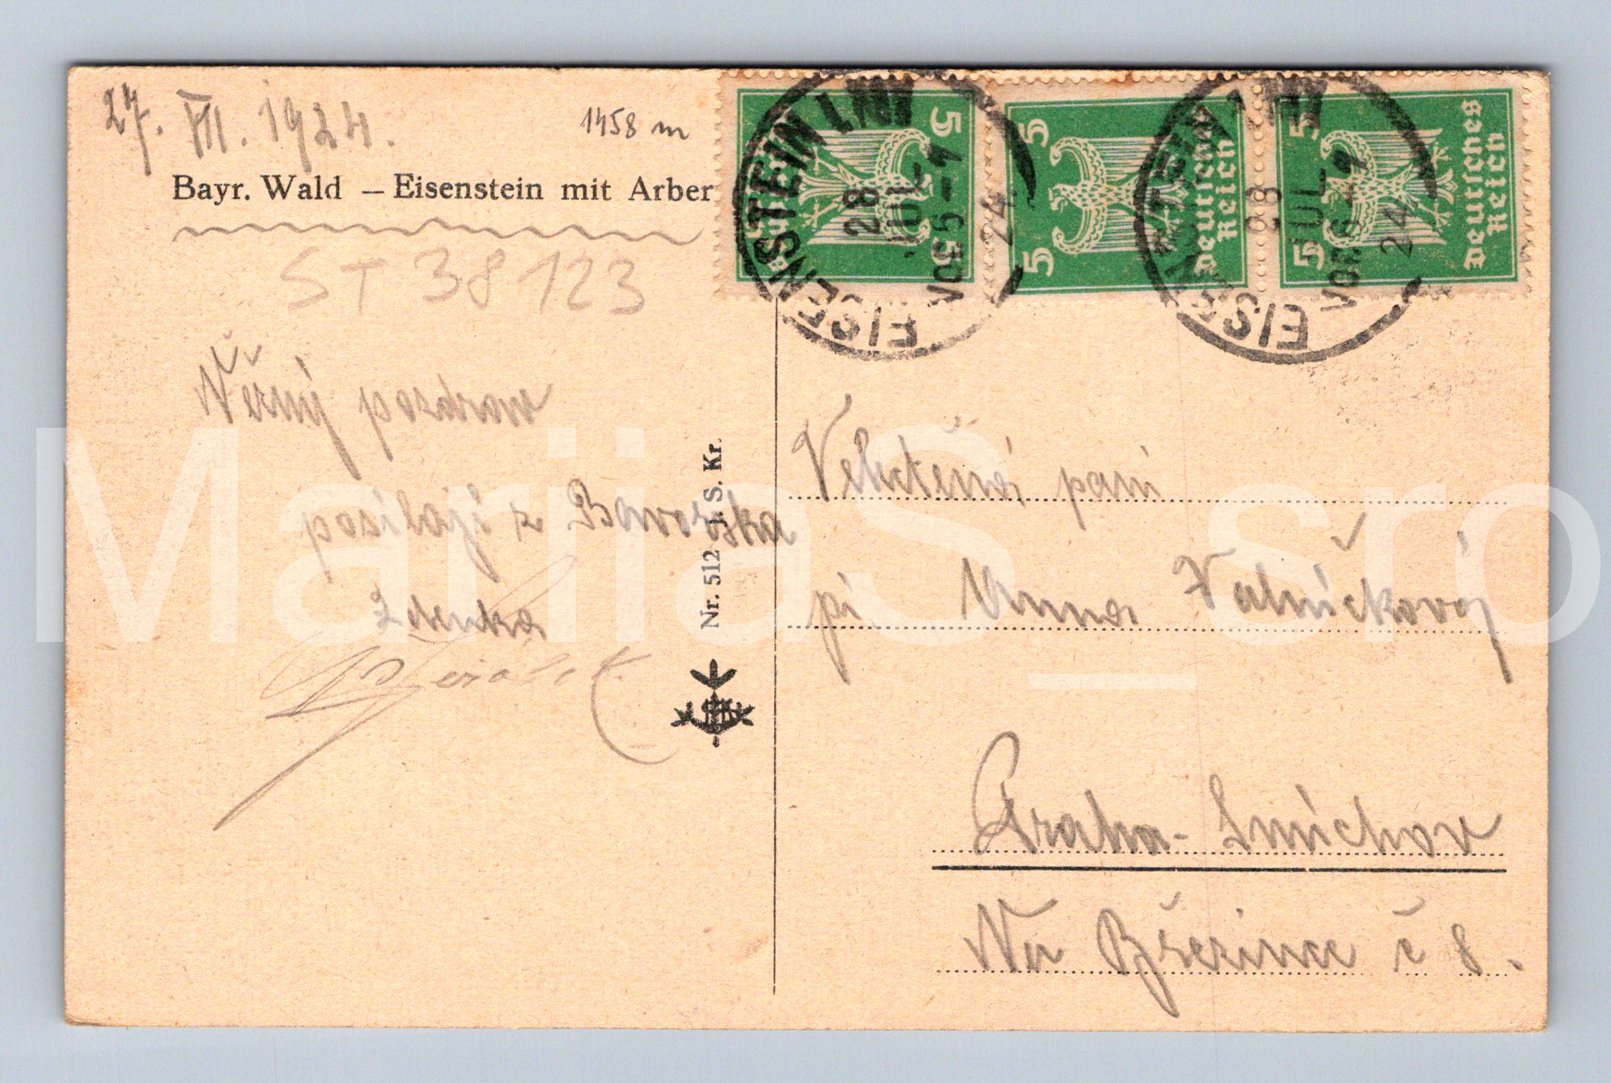 27. VII. 1924.
1458 m
Bayr. Wald – Eisenstein mit Arber
ST 38123
Věrný pozdrav
posílají z Bavorska
Zdenka
Nr. 512 J. S. Kr.
5 5 Deutsches Reich
5 5 Deutsches Reich
5 5 Deutsches Reich
EISENSTEIN
28 JUL
Vor 6-
24
EISENSTEIN 1
28 JUL
Vor
24
Velectěná paní
pí Anna
Praha - Smíchov
Na Březince č 8.
MarijaS_sro